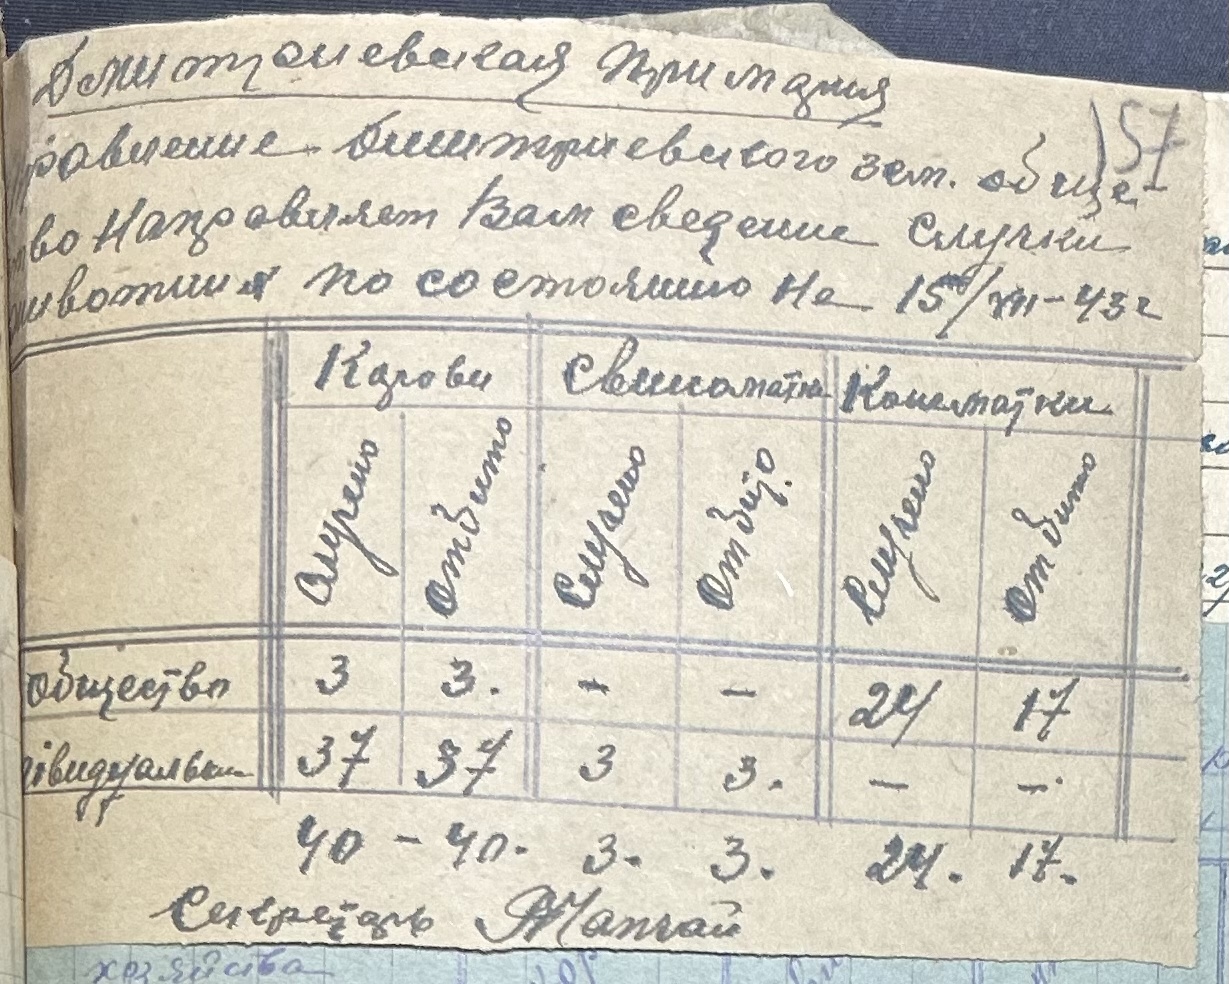 Дмитриевская Примария
57
равление Дмитриевского зем. обще-
во Направляет Вам сведение Случки
ивотния по состоянию На 15/XII-43г
Карови Свиноматки Конематки
Случено Отбито Случено Отбито Случено Отбито
общество 3 3. - - 24 17
ивидуальн 37 37 3 3. - -
40 - 40. 3. 3. 24. 17.
Секретарь
хозяйства